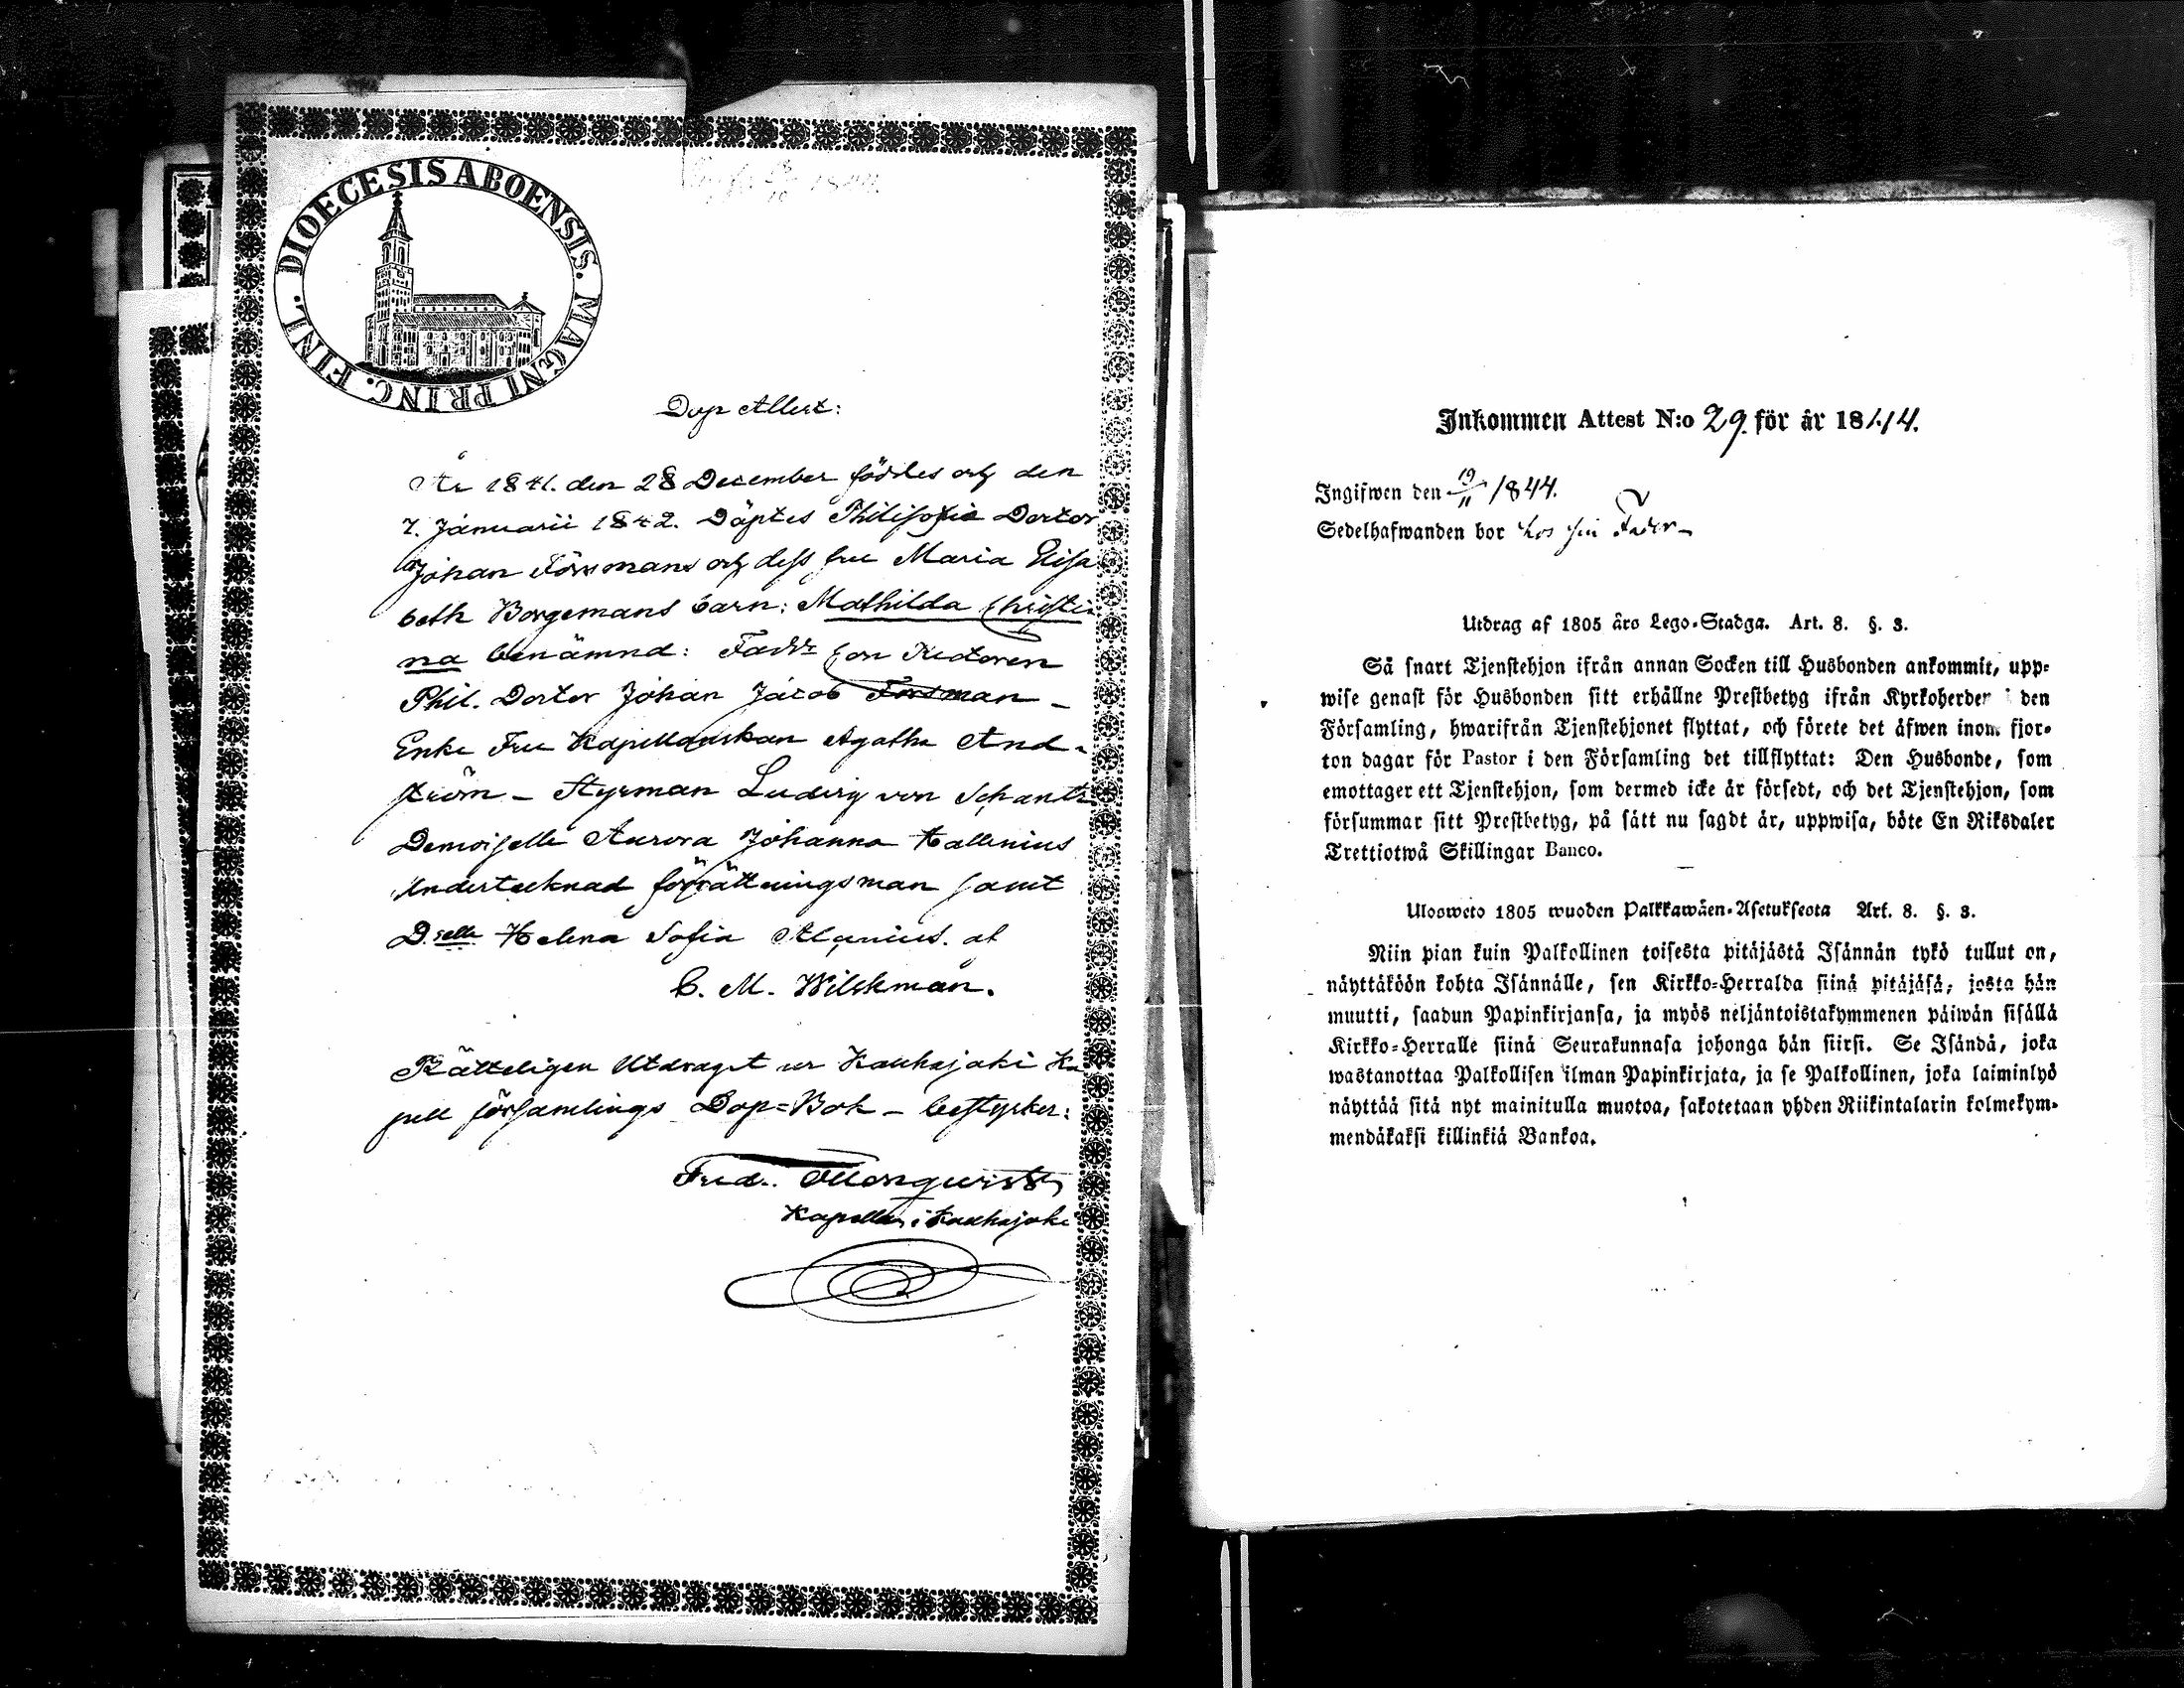 DIOECESIS ABOENSIS. MAGNI PRINC. FINL.
Dop Attest:
År 1841. den 28 December föddes och den
7. Januarii 1842. Döptes Philisofie Doctor
Johan Forsmans och dess fru Maria Elisa
beth Borgemans barn: Mathilda Christi
na benämnd: Rectoren
Phil. Docter Johan Jacob Forsman –
Enke Fru Kapellanskan Agatha And-
ström – Styrman Ludvig von Schantz
Demoiselle Aurora Johanna Hallenius
Undertecknad förrättningsman samt
D:selle Helena Sofia Alcenius. af
C. M. Wilskman.
Rätteligen Utdraget ur Kauhajoki Ka
pell församlings Dop=Bok – bestyrker:
Fred.
Kapellan i Kauhajoki
Inkommen Attest N:o 29. för år 1844.
Ingifwen den 19/11 1844.
Sedelhafwanden bor hos sin Fader –
Utdrag af 1805 års Lego-Stadga. Art. 8. §. 3.
Så snart Tjenstehjon ifrån annan Socken till Husbonden ankommit, upp-
wise genast för Husbonden sitt erhållne Prestbetyg ifrån Kyrkoherden i den
Församling, hwarifrån Tjenstehjonet flyttat, och förete det äfwen inom fjor-
ton dagar för Pastor i den Församling det tillflyttat: Den Husbonde, som
emottager ett Tjenstehjon, som dermed icke är försedt, och det Tjenstehjon, som
försummar sitt Prestbetyg, på sätt nu sagdt är, uppwisa, böte En Riksdaler
Trettiotwå Skillingar Banco.
Ulosweto 1805 wuoden Palkkawäen-Asetuksesta Art. 8. §. 3.
Niin pian kuin Palkollinen toisesta pitäjästä Isännän tykö tullut on,
näyttäköön kohta Isännälle, sen Kirkko-Herralda siinä pitäjäsä, josta hän
muutti, saadun Papinkirjansa, ja myös neljäntoistakymmenen päiwän sisällä
Kirkko-Herralle siinä Seurakunnasa johonga hän siirsi. Se Isändä, joka
wastanottaa Palkollisen ilman Papinkirjata, ja se Palkollinen, joka laiminlyö
näyttää sitä nyt mainitulla muotoa, sakotetaan yhden Riikintalarin kolmekym-
mendäkaksi killinkiä Bankoa.